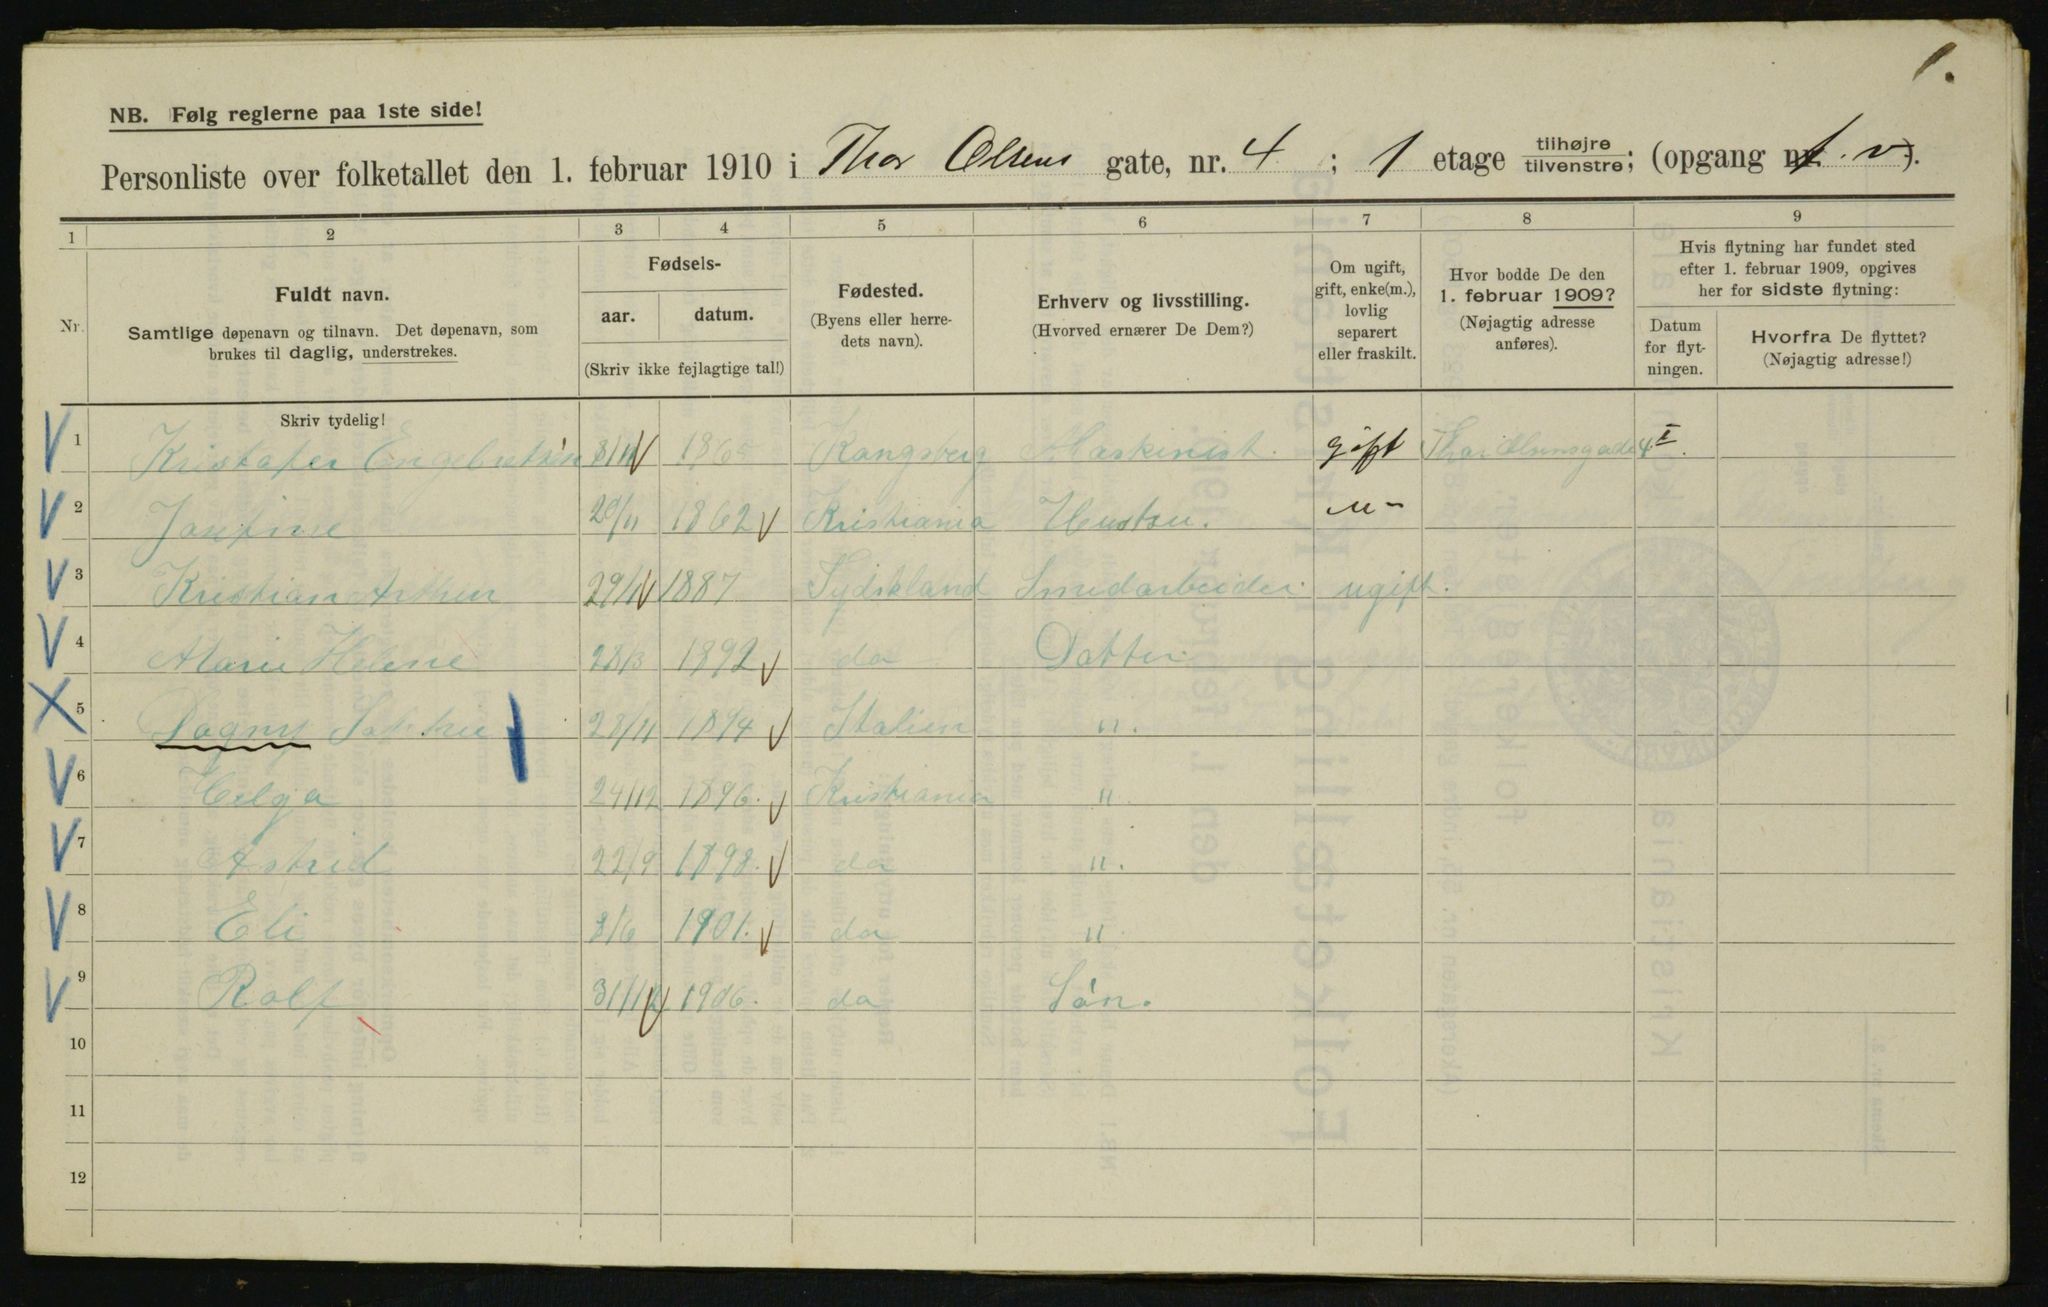 1.
NB. Følg reglerne paa 1ste side!
Personliste over folketallet den 1. februar 1910 i Thor Olsens gate, nr. 4 ; 1 etage tilhøjre tilvenstre; (opgang nr. t.v).
1 2 3 4 5 6 7 8 9
Nr.
Fuldt navn.
Samtlige døpenavn og tilnavn. Det døpenavn, som
brukes til daglig, understrekes.
Fødsels-
aar. datum.
(Skriv ikke fejlagtige tal!)
Fødested.
(Byens eller herre-
dets navn).
Erhverv og livsstilling.
(Hvorved ernærer De Dem?)
Om ugift,
gift, enke(m.),
lovlig
separert
eller fraskilt.
Hvor bodde De den
1. februar 1909?
(Nøjagtig adresse
anføres).
Hvis flytning har fundet sted
efter 1. februar 1909, opgives
her for sidste flytning:
Datum
for flyt-
ningen.
Hvorfra De flyttet?
(Nøjagtig adresse!)
Skriv tydelig!
1 Kristofer Engebretsen 8/11 1865 Kongsberg Maskinist. gift Thor Olsensgade 4 I.
2 Josefine 20/11 1862 Kristiania Hustru. "-
3 Kristian Arthur 29/11 1887 Tydskland Smedarbeider ugift.
4 Marie Helene 28/3 1892 do Datter
5 Dagny 28/11 1894 Italien ".
6 Helga 24/12 1896. Kristiania "
7 Astrid 22/9 1898. do ".
8 Eli 8/6 1901. do "
9 Rolf 31/12 1906. do Søn.
10
11
12